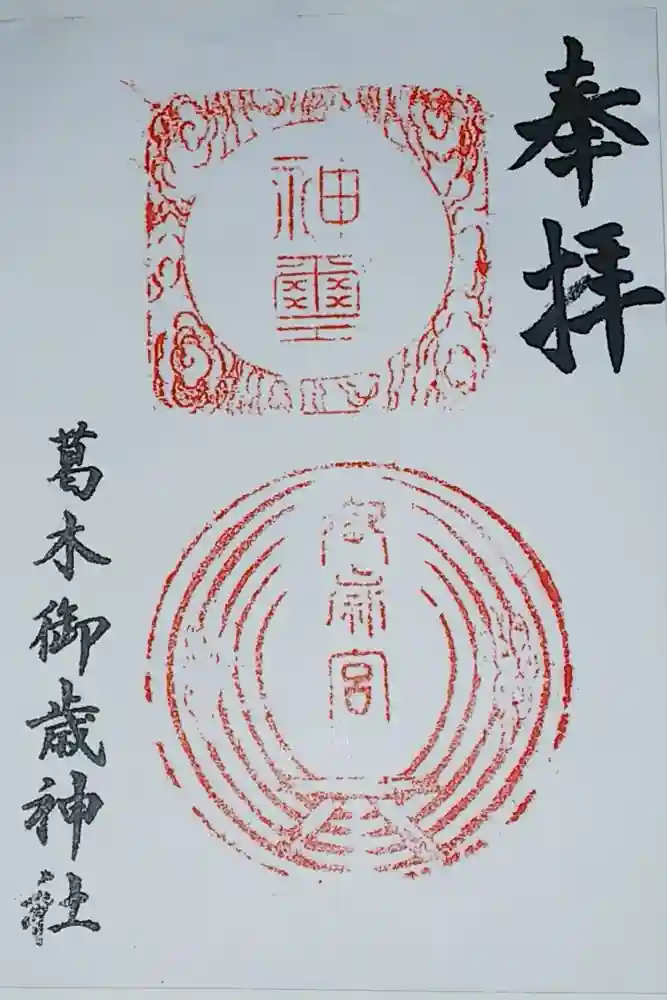 奉拝
神璽
宮
葛木御歳神社